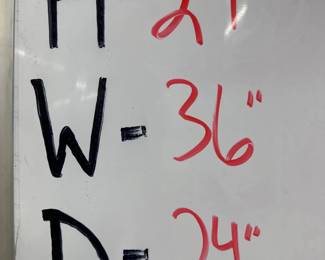 H 24"
W- 36"
D= 24"